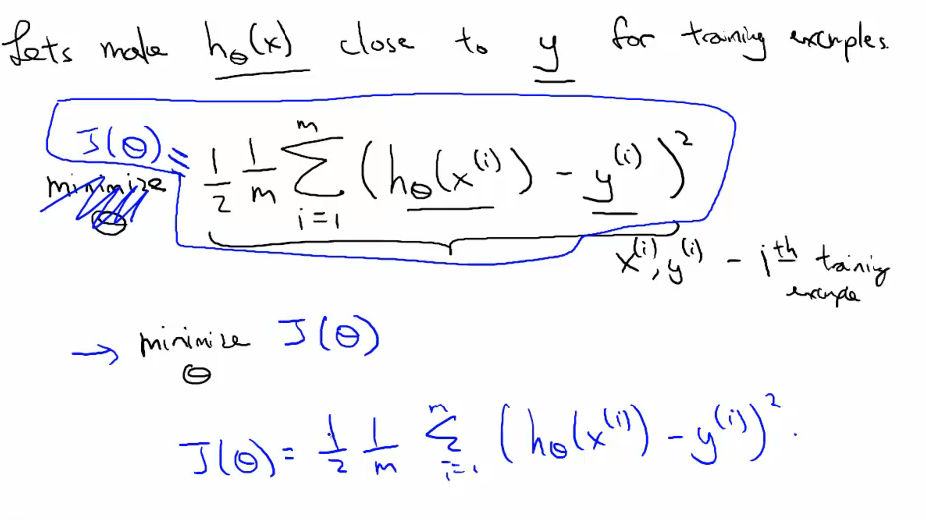 Lets make hθ(x) close to y for training examples.
J(θ) = 1/2 1/m ∑_{i=1}^{m} (hθ(x^(i)) - y^(i))²
minimize
θ
x^(i), y^(i) - ith training
example
→ minimize J(θ)
θ
J(θ) = 1/2 1/m ∑_{i=1}^{m} (hθ(x^(i)) - y^(i))².